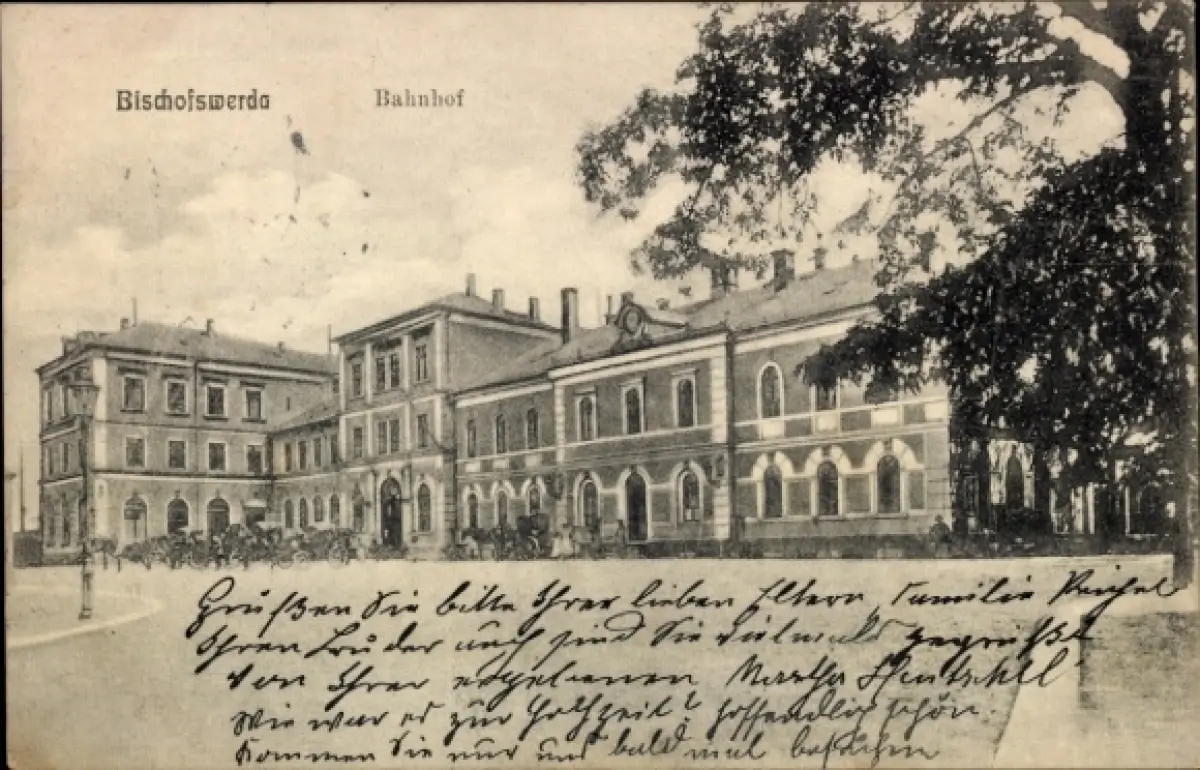 Bischofswerda Bahnhof
Grüßen Sie bitte Ihre lieben Eltern, Familie Reichel
Ihren Bruder auch sind Sie vielmals gegrüßt
von Ihrer ergebenen Martha
Wie war es zur Hochzeit? Hoffendlich schön.
Kommen Sie nur uns bald mal besuchen